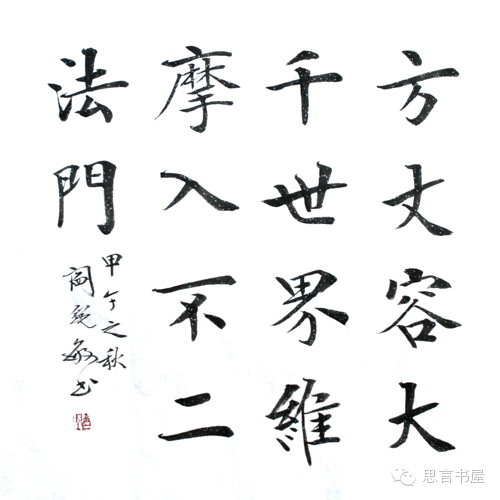 方丈容大
千世界維
摩入不二
法門
甲午之秋
思言书屋